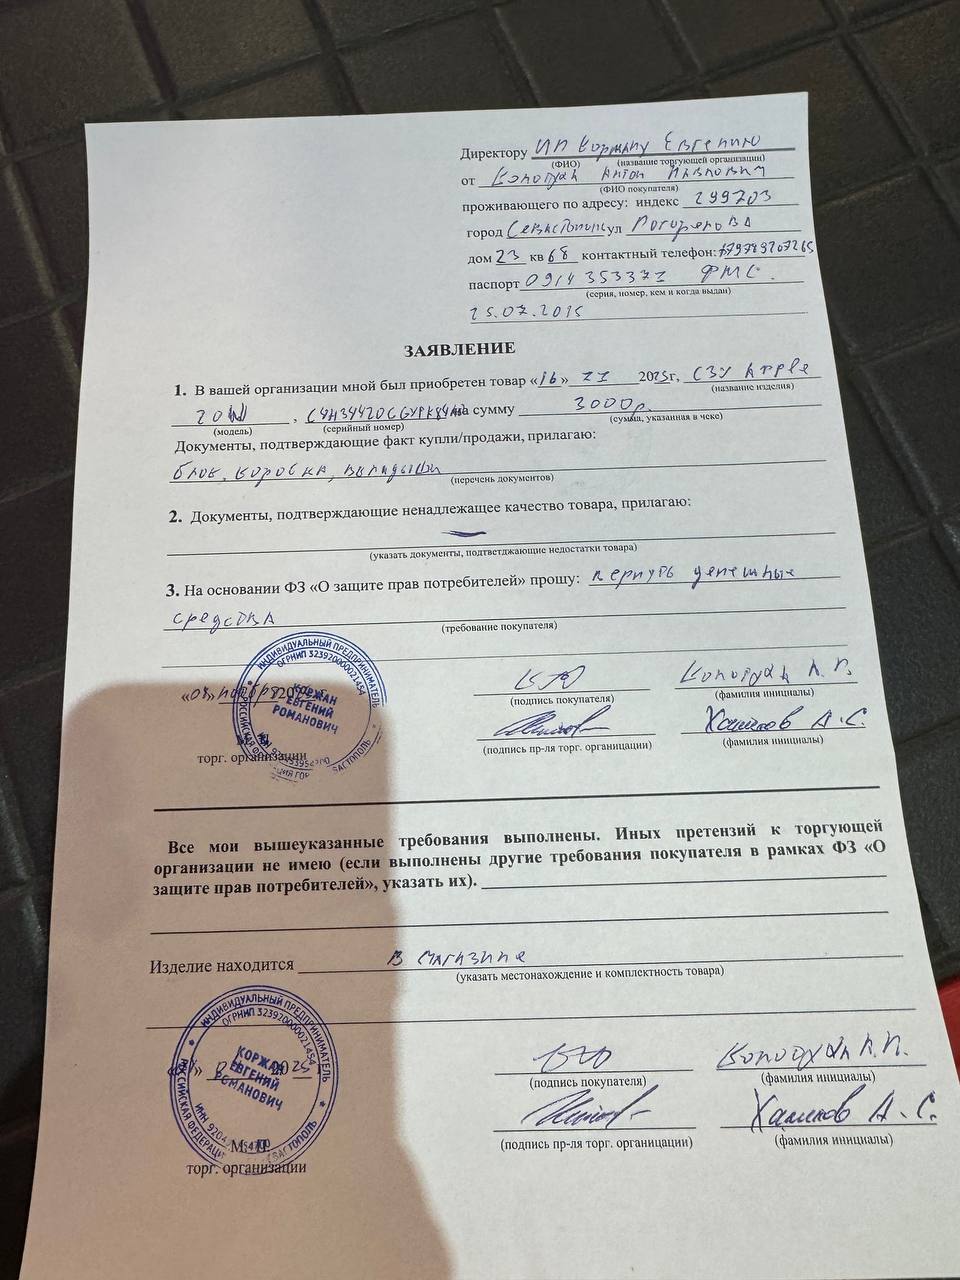 Директору ИП Коржану Евгению
(ФИО) (название торгующей организации)
от Антон Павлович
(ФИО покупателя)
проживающего по адресу: индекс 299703
город Севастополь ул
дом 23 кв 68 контактный телефон:
паспорт 0914 353371 ФМС.
(серия, номер, кем и когда выдан)
25.07.2015
ЗАЯВЛЕНИЕ
1. В вашей организации мной был приобретен товар «16» 2025г, СЗУ Apple
(название изделия)
20W , на сумму 3000р.
(модель) (серийный номер) (сумма, указанная в чеке)
Документы, подтверждающие факт купли/продажи, прилагаю:
блок, коробка, вкладыши
(перечень документов)
2. Документы, подтверждающие ненадлежащее качество товара, прилагаю:
(указать документы, подтветджающие недостатки товара)
3. На основании ФЗ «О защите прав потребителей» прошу: вернуть денежные
средства
(требование покупателя)
ИНДИВИДУАЛЬНЫЙ ПРЕДПРИНИМАТЕЛЬ
ОГРНИП 323920000021454
КОРЖАН
ЕВГЕНИЙ
РОМАНОВИЧ
А. П.
(подпись покупателя) (фамилия инициалы)
Хамиков А.С.
(подпись пр-ля торг. органицации) (фамилия инициалы)
торг. организации
Все мои вышеуказанные требования выполнены. Иных претензий к торгующей
организации не имею (если выполнены другие требования покупателя в рамках ФЗ «О
защите прав потребителей», указать их).
Изделие находится В магазине
(указать местонахождение и комплектность товара)
ИНДИВИДУАЛЬНЫЙ ПРЕДПРИНИМАТЕЛЬ
ОГРНИП 323920000021454
КОРЖАН
ЕВГЕНИЙ
РОМАНОВИЧ
А.П.
(подпись покупателя) (фамилия инициалы)
Хамиков А.С.
(подпись пр-ля торг. органицации) (фамилия инициалы)
М. П.
торг. организации